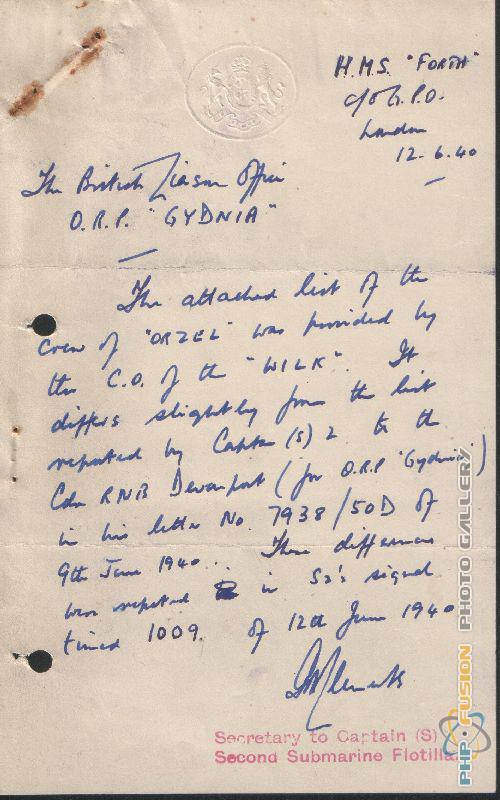 H.M.S. "FORTH"
c/o G.P.O.
London
12.6.40
The British Liason Office
O.R.P. "GYDNIA"
The attached list of the
crew of "ORZEL" was provided by
the C.O. of the "WILK". It
differs slightly from the list
reported by Captn (S) 2 to the
Cdr RNB Devonport (for O.R.P "Gydnia")
in his letter No. 7938/50D of
9th June 1940. These differences
were reported in S2's signal
timed 1009 of 12th June 1940
Clements
Secretary to Captain (S)
Second Submarine Flotilla.
PHP-FUSION PHOTO GALLERY